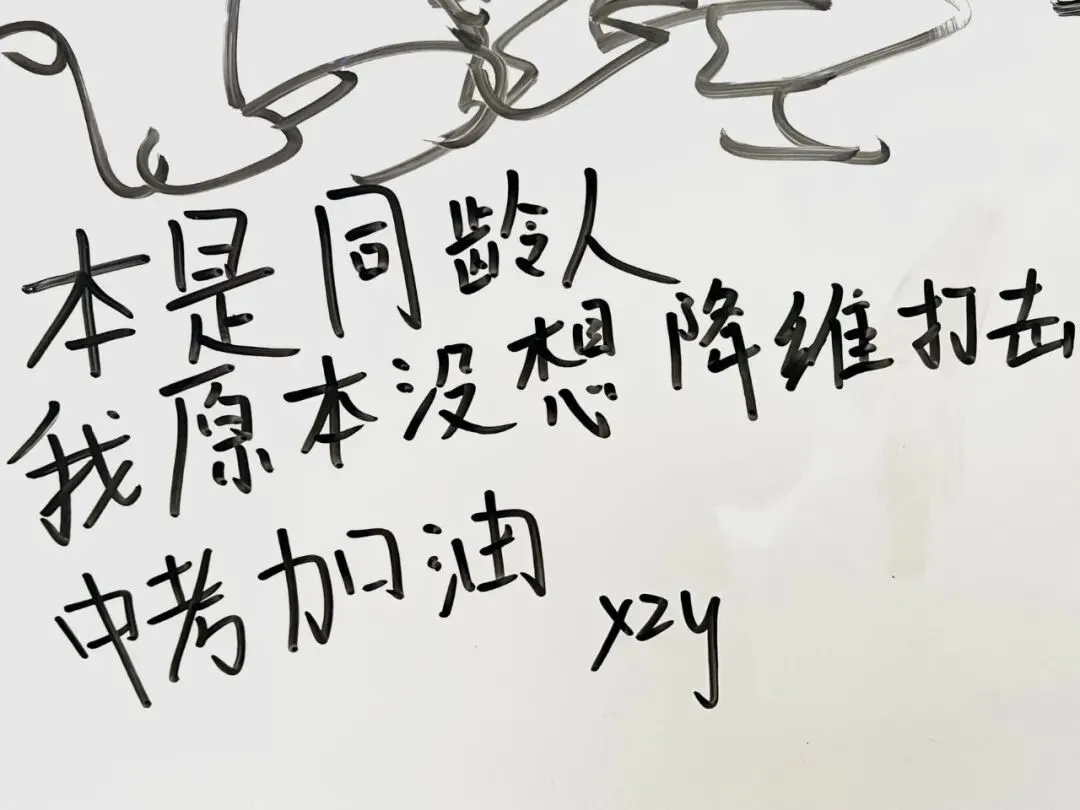 本是同龄人
我原本没想降维打击
中考加油
xzy